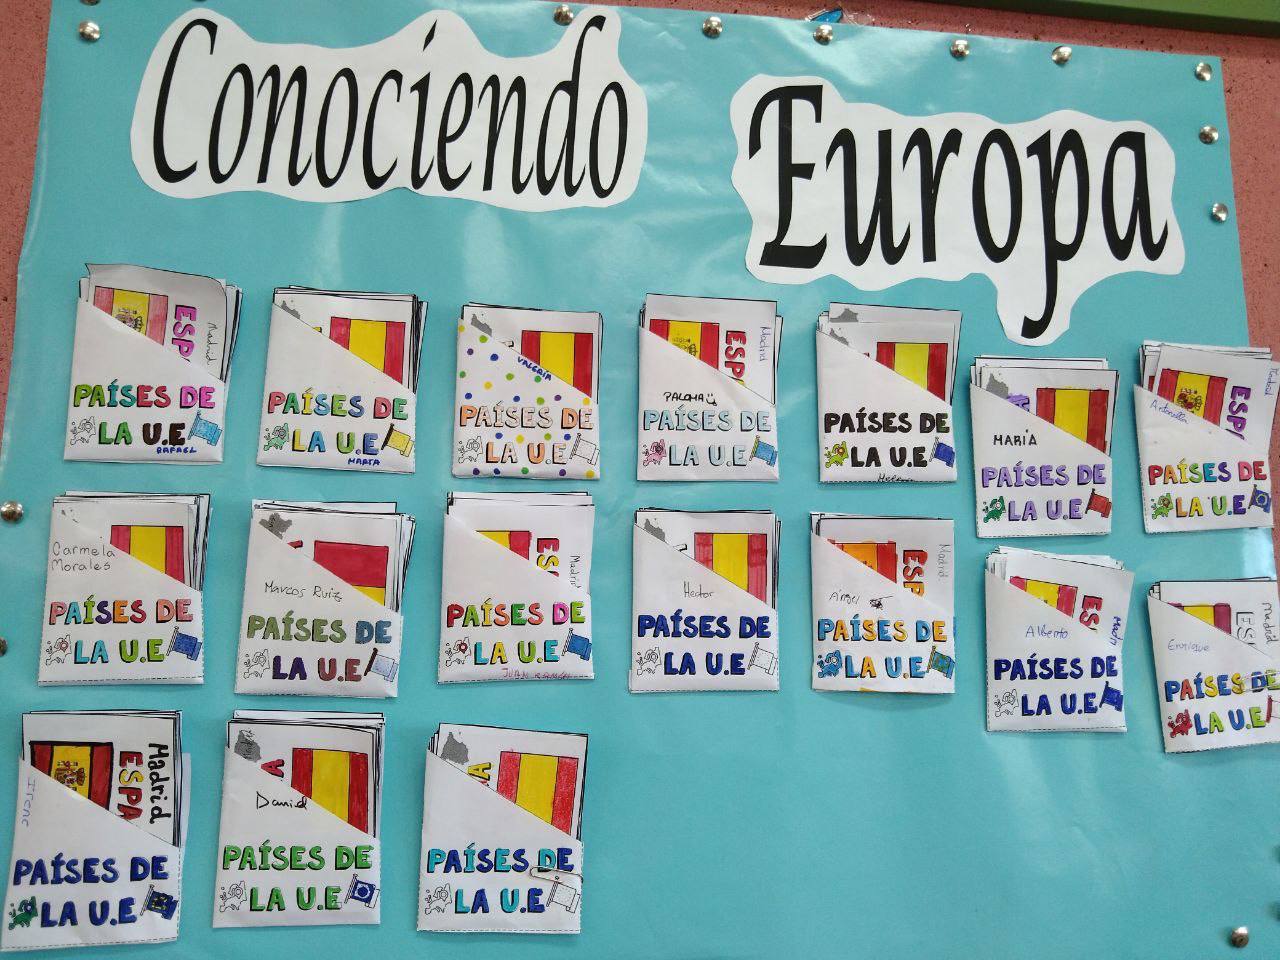 Conociendo
Europa
ESP
Madrid
PAÍSES DE
LA U.E
RAFAEL
PAÍSES DE
LA U.E
MARTA
VALERIA
PAÍSES DE
LA U.E
ESP
Madrid
PALOMA
PAÍSES DE
LA U.E
PAÍSES DE
LA U.E
MARIA
PAÍSES DE
LA U.E
ESP
Madrid
Antonella
PAÍSES DE
LA U.E
Carmela
Morales
PAÍSES DE
LA U.E
Marcos Ruiz
PAÍSES DE
LA U.E
ES
Madrid
PAÍSES DE
LA U.E
Hector
PAÍSES DE
LA U.E
ESP
Madrid
Angel
PAÍSES DE
LA U.E
ES
Madri
Alberto
PAÍSES DE
LA U.E
ES
Madrid
Enrique
PAÍSES DE
LA U.E
Madrid
ESPA
Irene
PAÍSES DE
LA U.E
A
Daniel
PAÍSES DE
LA U.E
A
PAÍSES DE
LA U.E